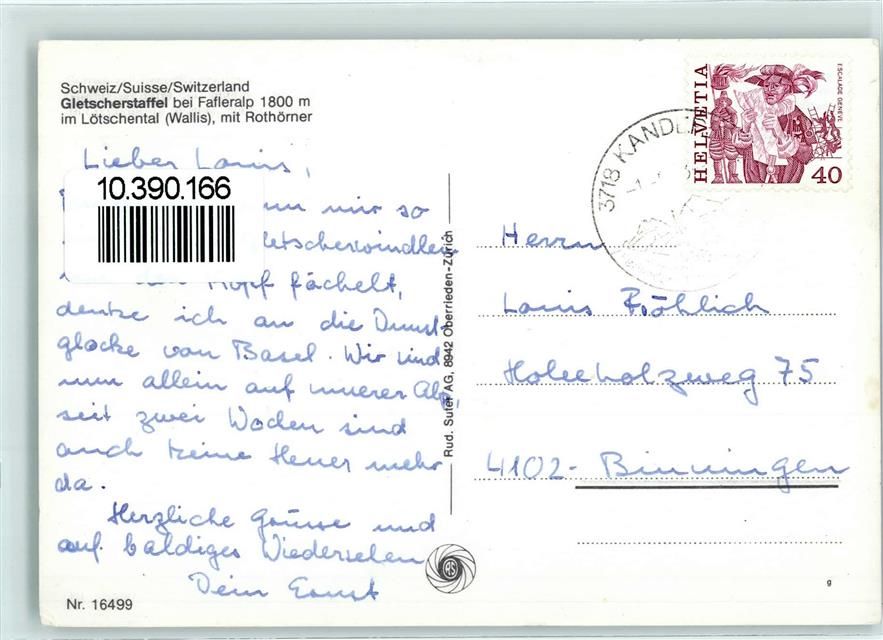 Schweiz/Suisse/Switzerland
Gletscherstaffel bei Fafleralp 1800 m
im Lötschental (Wallis), mit Rothörner
Lieber Louis,
10.390.166
mir so
letscherwindlein
Kopf fächelt,
denke ich an die Dunst-
glocke von Basel. Wir sind
nun allein auf unserer Alp,
seit zwei Wochen sind
auch keine Heuer mehr
da.
Herzliche Grüsse und
auf baldiges Wiedersehen
Dein Ernst
Nr. 16499
Rud. Suter AG, 8942 Oberrieden-Zürich
RS
3718 KANDE
HELVETIA
ESCALADE GENEVE
40
Herrn
Louis Fröhlich
Holeeholzweg 75
4102- Binningen
g